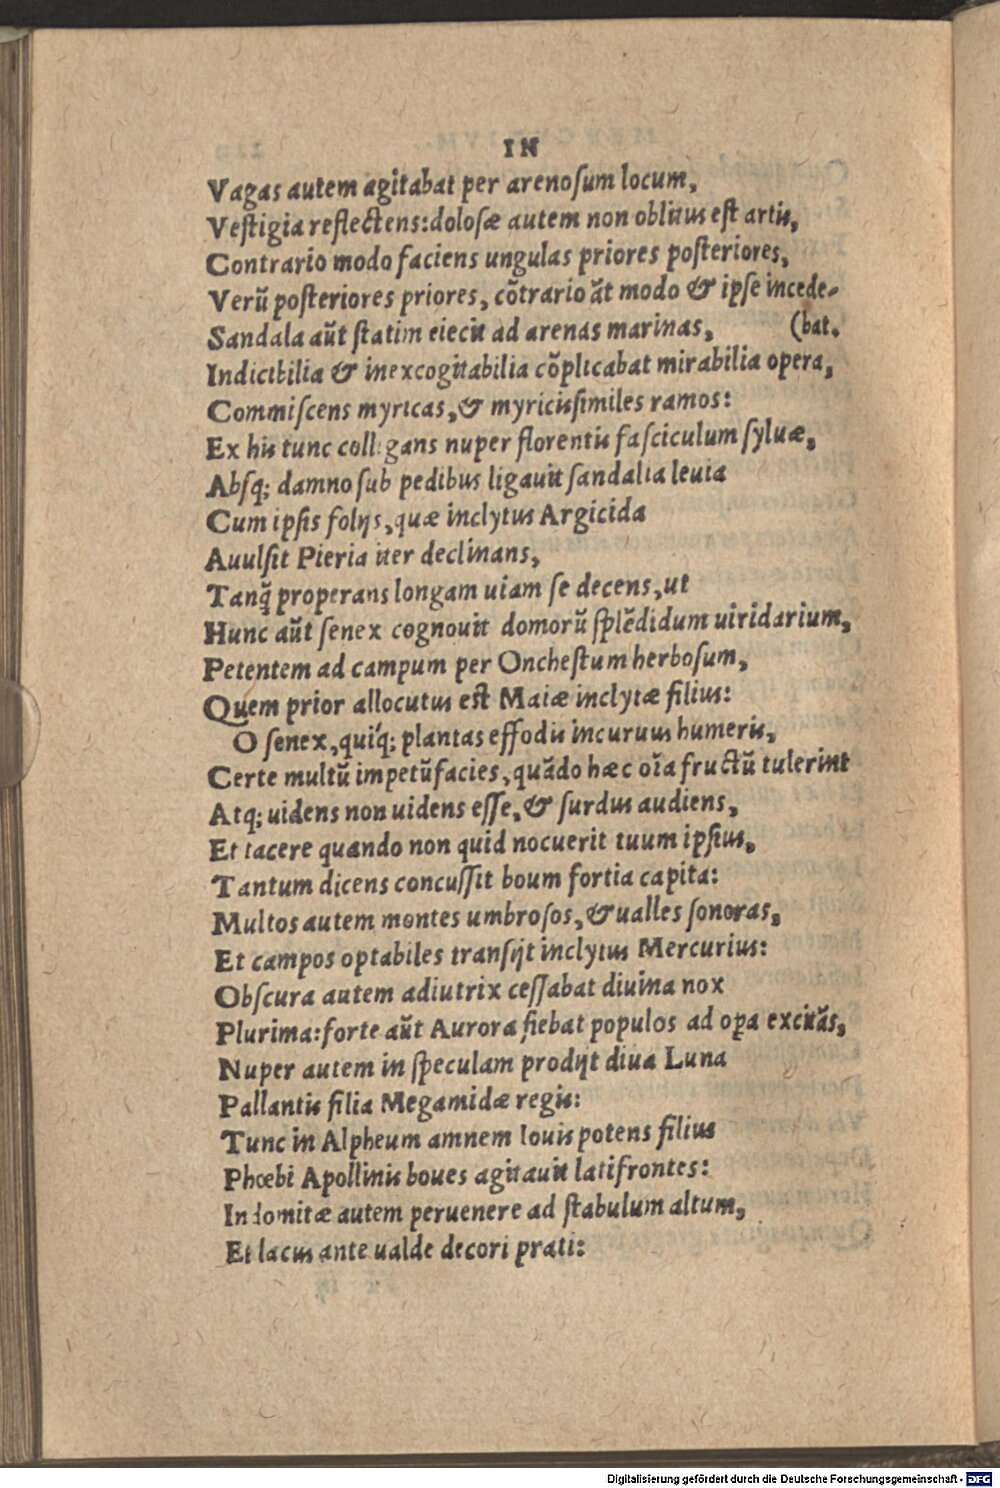 IN
Vagas autem agitabat per arenoſum locum,
Veſtigia reflectens: doloſæ autem non oblitus eſt artis,
Contrario modo faciens ungulas priores poſteriores,
Verũ poſteriores priores, cõtrario ãt modo & ipſe incede-
Sandala aũt ſtatim eiecit ad arenas marinas, (bat.
Indicibilia & inexcogitabilia cõplicabat mirabilia opera,
Commiſcens myricas, & myricisſimiles ramos:
Ex his tunc colligans nuper florentis faſciculum ſyluæ,
Abſq; damno ſub pedibus ligauit ſandalia leuia
Cum ipſis folijs, quæ inclytus Argicida
Auulſit Pieria iter declinans,
Tanq̃ properans longam uiam ſe decens, ut
Hunc aũt ſenex cognouit domorũ ſplẽdidum uiridarium,
Petentem ad campum per Oncheſtum herboſum,
Quem prior allocutus eſt Maiæ inclytæ filius:
O ſenex, quiq́; plantas effodis incuruus humeris,
Certe multũ impetũ facies, quãdo hæc oĩa fructũ tulerint
Atq; uidens non uidens eſſe, & ſurdus audiens,
Et tacere quando non quid nocuerit tuum ipſius,
Tantum dicens concuſſit boum fortia capita:
Multos autem montes umbroſos, & ualles ſonoras,
Et campos optabiles tranſijt inclytus Mercurius:
Obſcura autem adiutrix ceſſabat diuina nox
Plurima: forte aũt Aurora fiebat populos ad oꝑa excitãs,
Nuper autem in ſpeculam prodijt diua Luna
Pallantis filia Megamidæ regis:
Tunc in Alpheum amnem Iouis potens filius
Phœbi Apollinis boues agitauit latifrontes:
Indomitæ autem peruenere ad ſtabulum altum,
Et lacus ante ualde decori prati:
Digitalisierung gefördert durch die Deutsche Forschungsgemeinschaft - DFG